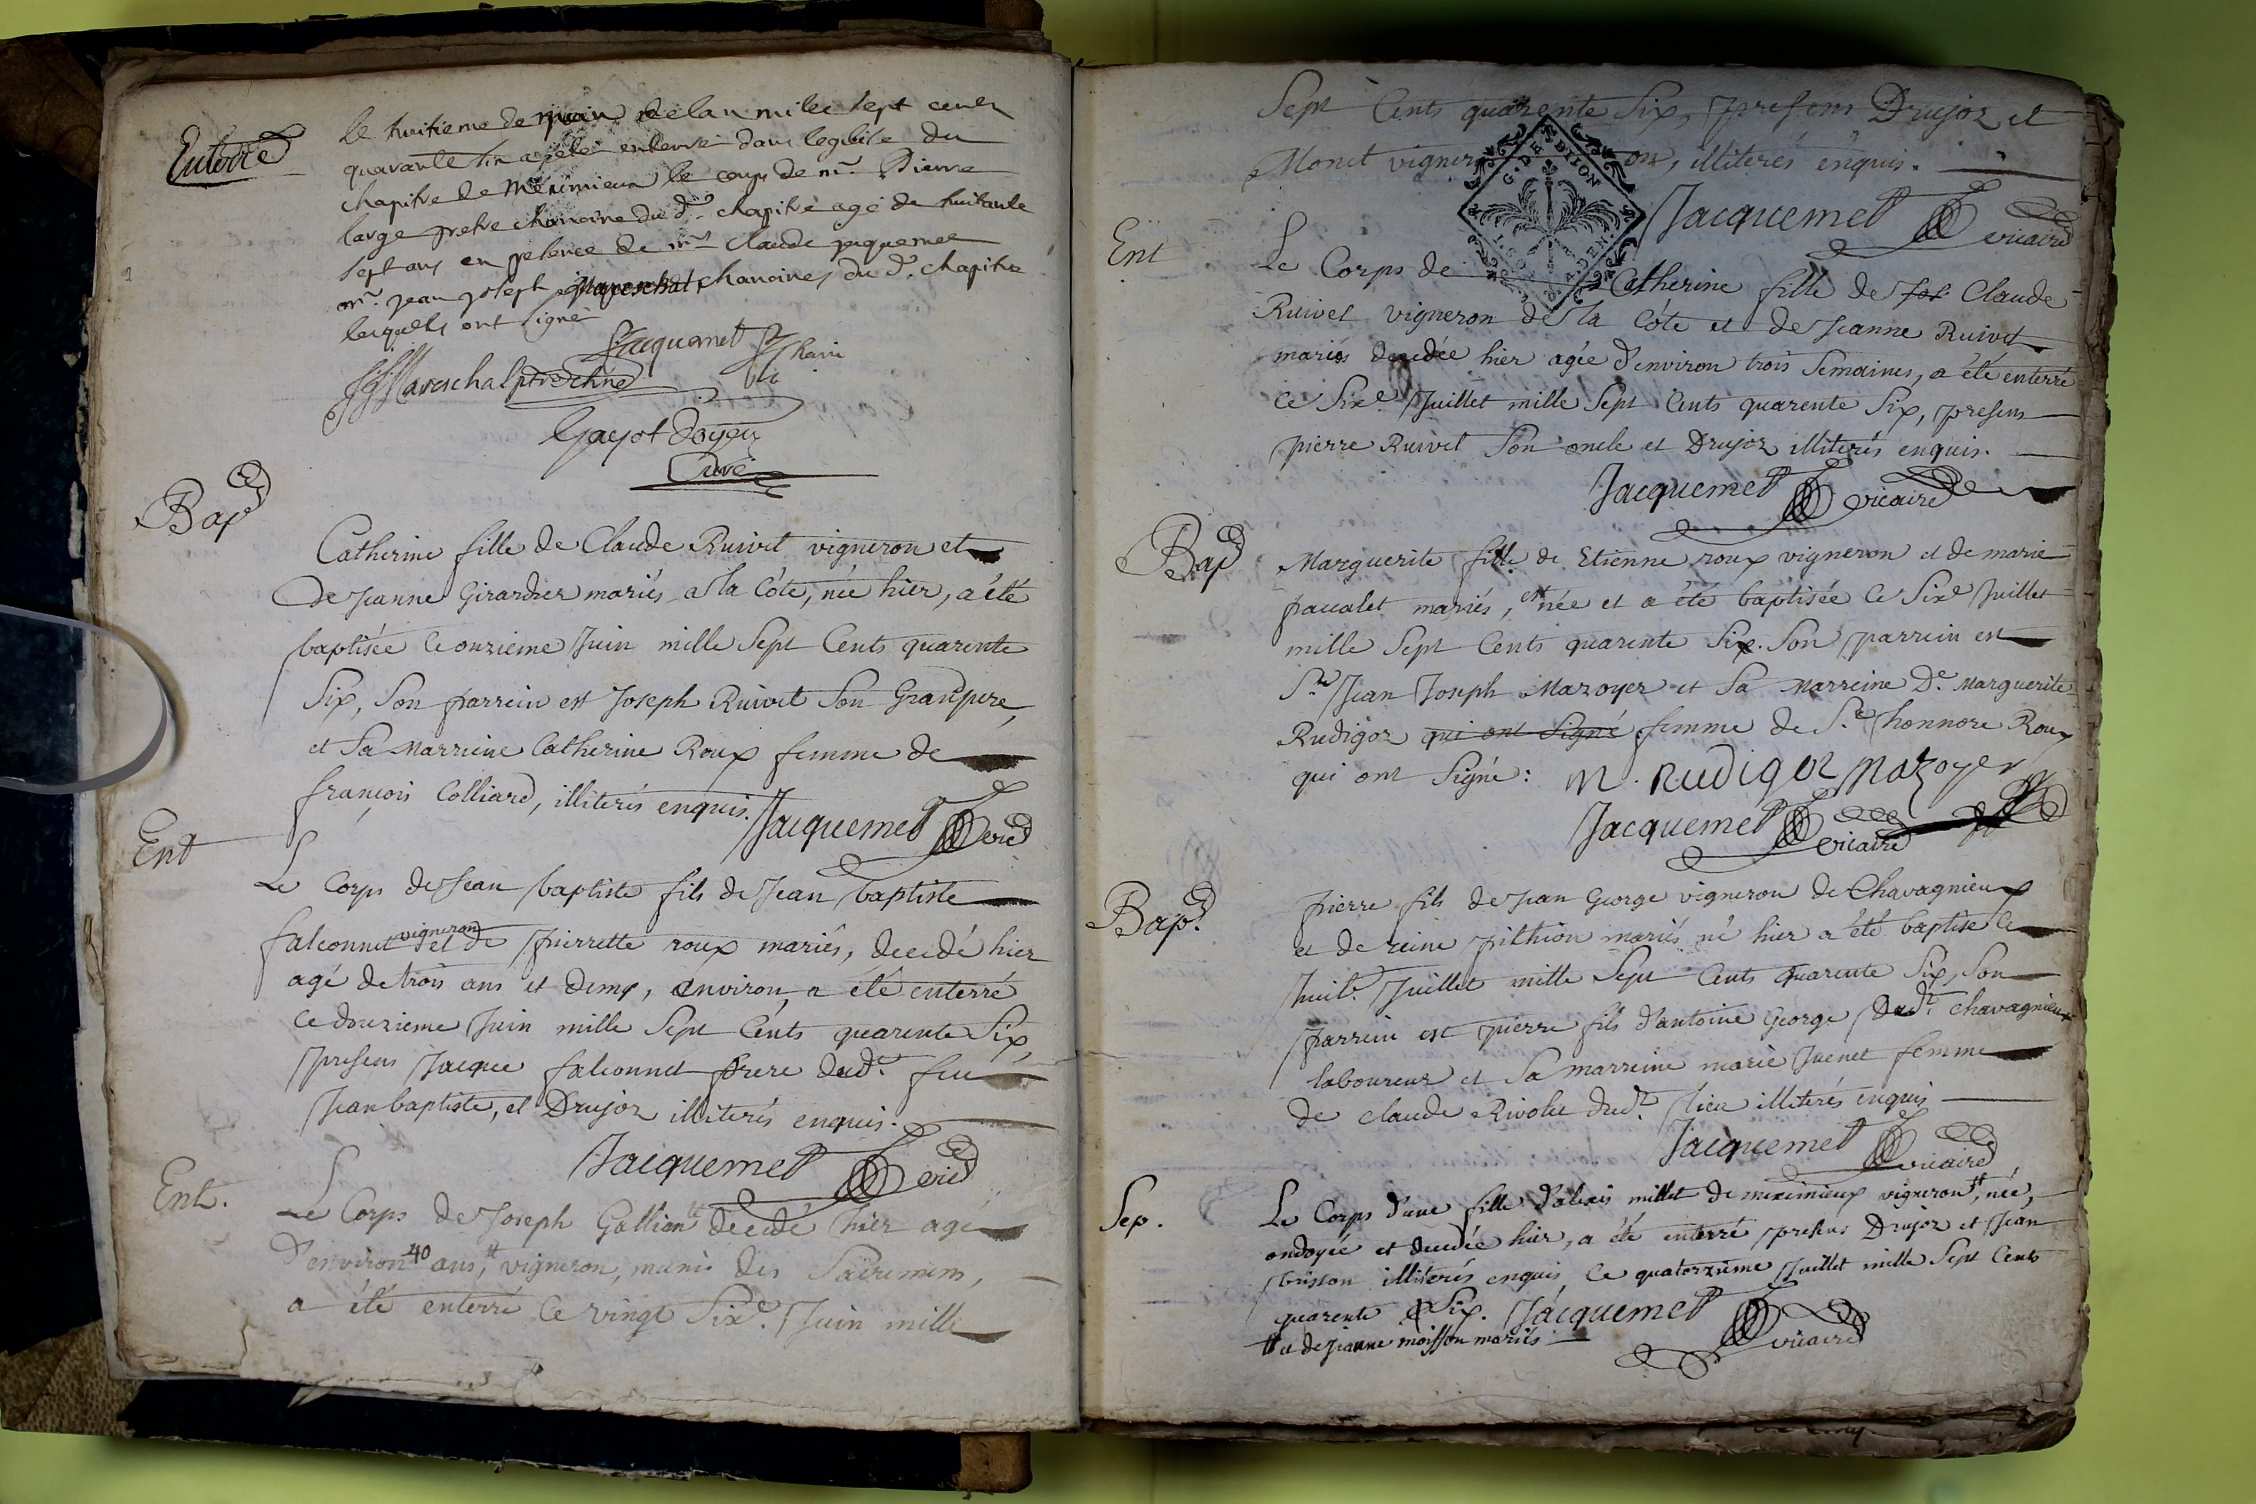 Enterré
le huitieme de juin de lan mile sept cens
quarante six a esté enterré dans leglise du
chapitre de Meximieux le corps de mr. Pierre
large pretre chanoine du dt. chapitre agé de huitante
sept ans en presence de mrs Claude jaquemet
mr. jean joseph Mareschal chanoines du dt. chapitre
lesquels ont signé
Jacquemet
JJ Mareschal ptre chne
Gayot Doyen
Curé
Bapt
Catherine fille de Claude Ruivet vigneron et
de Jeanne Girardier mariés a la Côte, née hier, a été
baptisée ce onzieme Juin mille Sept Cents quarente
Six, Son parrein est Joseph Ruivet Son Grandpere,
et Sa Marreine Catherine Roux femme de
françois Colliard, illiterés enquis. Jacquemet vic
Ent
Le Corps de Jean baptiste fils de Jean baptiste
falconnet vigneron et de pierrette roux mariés, decedé hier
agé de trois ans et demy, environ, a été enterré
ce douzieme Juin mille Sept Cents quarente Six,
presens Jacque falconnet frere dudt. feu
Jean baptiste, et Drujoz illiterés enquis.
Jacquemet vic
Ent.
Le Corps de Joseph Gallien tt decedé hier agé
d'environ 40 ans, tt vigneron, muni des Sacremens,
a été enterré Ce vingt Sixe. Juin mille
Sept Cents quarente Six, presens Drujoz et
Monet vigneron, illiterés enquis.
G. DE DIJON
Jacquemet vicaire
Ent
Le Corps de Catherine fille de Claude
Ruivet vigneron de la Côte et de Jeanne Ruivet
mariés decedée hier agée d'environ trois Semaines, a été enterré
ce Sixe Juillet mille Sept Cents quarente Six, presens
pierre Ruivet Son oncle et Drujoz illiterés enquis.
Jacquemet vicaire
Bapt
Marguerite fille de Etienne roux vigneron et de marie
pacalet mariés, est née et a été baptisée Ce Sixe Juillet
mille Sept Cents quarente Six. Son parrein est
Sr. Jean Joseph Mazoyer et Sa Marreine De. Marguerite
Rudigoz qui ont Signé femme de Sr. honnore Roux
qui ont Signé: M. Rudigoz Mazoyer
Jacquemet vicaire
Bapt.
pierre fils de Jean George vigneron de Chavagnieux
et de reine pithion mariés né hier a été baptisé Ce
huit. Juillet mille Sept Cents quarente Six, Son
parrein est pierre fils d'antoine George dudt. Chavagnieux
laboureur et Sa marreine marie Juenet femme
de Claude Rivolet dudt. lieu illiterés enquis
Jacquemet vicaire
Sep.
Le Corps d'une fille d'alexis millet de meximieux vigneron tt, née,
ondoyée et decedée hier, a été enterré presens Drujoz et Jean
brisson illiterés enquis, Ce quatorzieme Juillet mille Sept Cents
quarente Six. Jacquemet vicaire
tt et de Jeanne moisson mariés